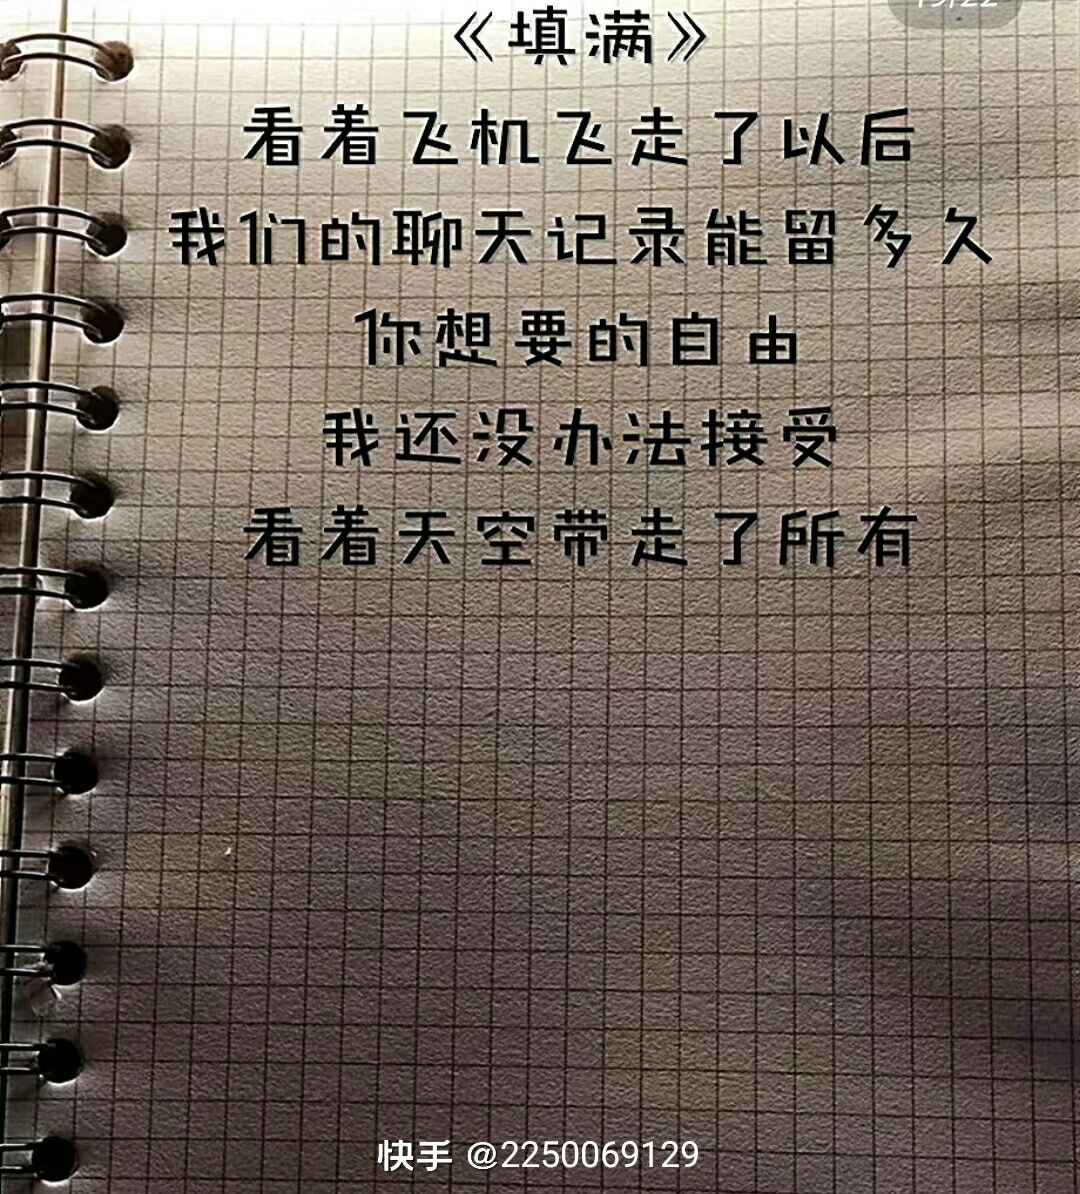 《填满》
看着飞机飞走了以后
我们的聊天记录能留多久
你想要的自由
我还没办法接受
看着天空带走了所有
快手 @2250069129